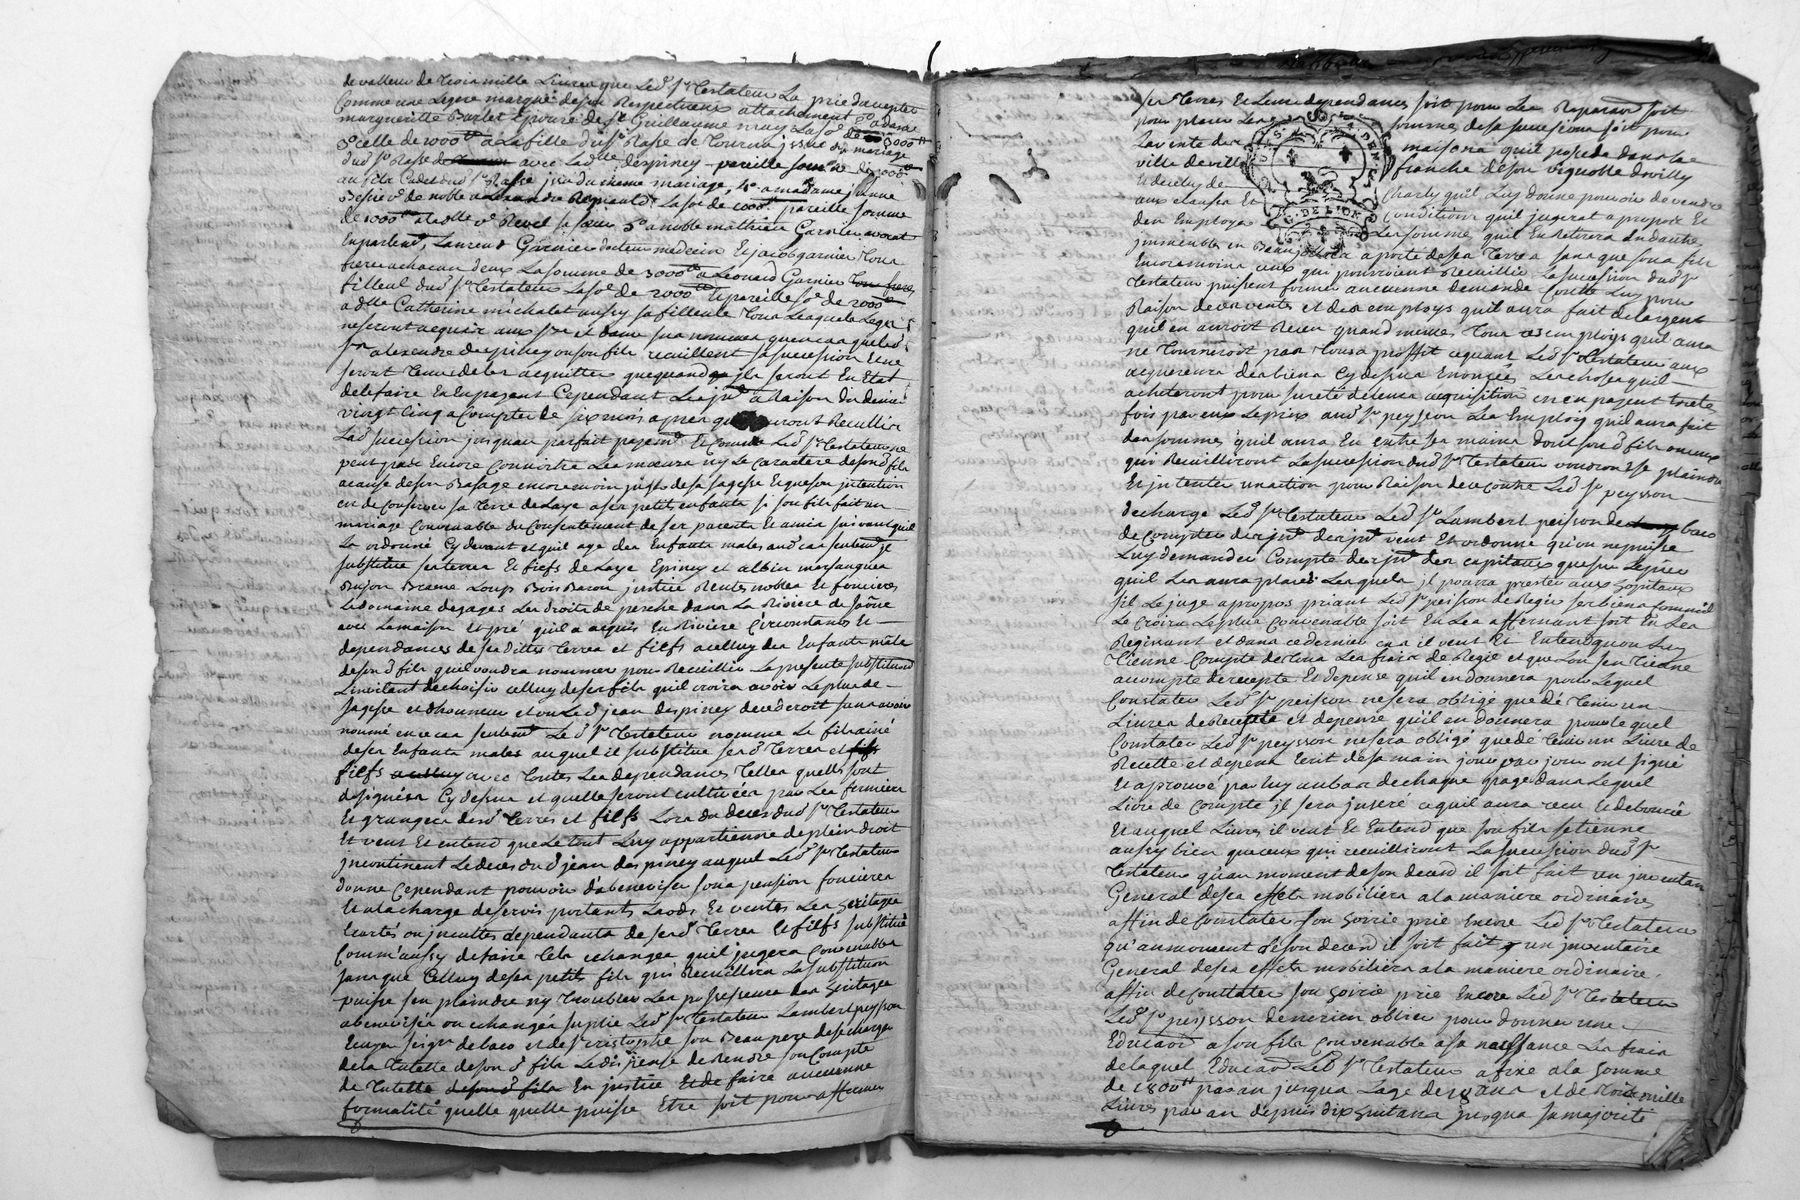 de valleur de trois mille Livres que Led. Sr Testateur La prie daccepter
Comme une Legere marque de son Respectueux attachement
margueritte Barlet Epouse de Sr Guillaume
3° celle de 1000tt a La fille dud Sr Rasse de Tournus issue du mariage
dud Sr Rasse avec Lad. dlle despiney pareille somme de 1000tt
au fils Cadet dud Sr Rasse issu du meme mariage, 4° a madame jeanne
de noble La so.e de 1000tt pareille somme
de 1000tt a la dlle Revel sa sœur 5° a noble mathieu Garnier avocat
En parlemt, Laurend Garnier docteur medecin Et jacob garnier Tous
freres a chacun deux La somme de 3000tt a Leonard Garnier
filleul dud Sr Testateur La so.e de 2000tt Et pareille so.e de 2000tt
a dlle Catherine michalet aussy sa filleule Tous Lesquels Legs
ne seront acquis aux srs et dames sus nommés quen cas que led.
Sr alexendre despiney ou son fils recüillent sa succession Et ne
seront tenus de les acquitter que quand ils seront En Etat
de le faire En En payant Cependant Les jnt a Raison du denier
vingt Cinq a Compter de six mois apres quils auront Recüilli
Lad succession jusquau parfait payemt Et Comme Led. Sr Testateur ne
peut pas Encore Connoitre Les mœurs ny Le Caractere de son d fils
a cause de son Basage encore moins juger de sa sagesse Et que son jntention
est de Conserver sa Terre de Laye a ses petits enfants si son fils fait un
mariage Convenable du Consentement de ses parents Et amis suivant quil
Le ordonne Cy devant et quil aye des Enfants males aud cas seulemt Je
substitue ses terres Et fiefs de Laye Epiney et albin marsangues
Bujon Braeme Loup Bois Baron justice Rentes nobles Et foncieres
Le domaine desages Les droits de pesche dans La Riviere de saône
avec La maison Et pré quil a acquis En Riviere Circonstances Et
dependances de ses dittes terres et fiefs a celluy des Enfants mâle
de son d fils quil voudra nommer pour Recüillir La presente substitution
Linvitant de choisir celluy de ses fils quil croira avoir Le plus de
sagesse et d'honneur et ou Led. jean despiney decederoit sans avoir
nommé en ce cas seulemt Le d Sr Testateur nomme Le fils ainé
de ses Enfants males auquel il substitue ses d Terres et fiefs
fiefs avec toutes Les dependances Telles quelles sont
designées Cy dessus et quelles seront cultivées par Les fermiers
Et grangers desd Terres et fiefs Lors du deces dud Sr Testateur
Et veut Et entend que Le tout Luy appartienne de plein droit
jncontinent Le deces du d jean despiney auquel Led. Sr Testateur
donne Cependant pouvoir d'abeneviser sous pension foncieres
Et a la charge de servis portants Laods Et ventes Les heritages
Ecartés ou jncultes dependants de sesd Terres Et fiefs substitués
Comm'aussy de faire Tels echanges quil jugera Convenables
sans que Celluy de ses petits fils qui Recüillira La substitution
puisse sen plaindre ny Troubler Les possesseurs des heritages
abenevisés ou echangés suplie Led. Sr Testateur Lambert peysson
Ecuyer seigr de baco et de St cristophe son Beau pere de se charger
de la Tutelle de son d fils Le dispense de Rendre son Compte
de Tutelle de son d fils En justice Et de faire aucunne
formalité quelle quelle puisse Etre soit pour affermer
ses Terres Et Leurs dependances soit pour Les Reparaõns soit
pour placer Les sommes de sa succession soit pour
La vente des maisons quil possede dans La
ville de ville franche de son vignoble dovilly
Et de celuy de Charly quil Luy donne pouvoir de vendre
aux clauses Et Conditions quil jugerat a propos Et
den Employer Les somme quil En Retirera En dautres
jmmeubles en Beaujollois a porté de ses Terres sans que son fils
Encore moins ceux qui pourroient Recüillir La succession dud Sr
Testateur puissent former aucunne demande Contre Luy pour
Raison de ces ventes et des employs quil aura fait de largent
quil en auroit Receu quand memes Tous ces employs quil aura
ne Tourneroit pas Tous a proffit ceque Led. Sr Testateur aux
acquereurs des biens Cy dessus Enoncés Les choses quil
acheteront pour sureté de leurs acquisition en en payent toutte
fois par eux Le prix aud Sr peysson Les Employ quil aura fait
des sommes quil aura Eu entre ses mains dont son d fils ou ceux
qui Recüilliront La succession dud Sr Testateur voudront se plaindre
Et jntenter un action pour Raison de ce contre Led Sr peysson
decharge Led. Sr Testateur Led. Sr Lambert peisson de baco
de compter des jnt des jnt veut Et ordonne qu'on ne puisse
Luy demander Compte des jnt des capitaux que sur Le pied
quil Les aura placés Lesquels jl pourra prester aux hopitaux
sil Le juge a propos priant Led Sr peisson de Regir ses biens comme il
Le croira Le plus Convenable soit En Les affermant soit En Les
Regissant et dans ce dernier cas il veut Et Entend quon Luy
Tienne Compte de Tous Les frais de Regie et que Lon sen Tienne
au compte de recepte Et depense quil en donnera pour Lequel
Constater Led. Sr peisson ne sera obligé que de Tenir un
Livres de Recepte et depense quil en donnera pour Le quel
Constater Led. Sr peysson ne sera obligé que de Tenir un Livre de
Recette et depense Ecrit de sa main jour par jour ont signé
Et aprouvé par Luy au bas de chaque page dans Lequel
Livre de Compte jl sera jnseré ce quil aura receu Et deboucé
Et auquel Livres il veut Et Entend que son fils se tienne
aussy bien que ceux qui recüilliront La succession dud Sr
Testateur quau moment de son deces il soit fait un jnventaire
General de ses effets mobiliers a la maniere ordinaires
affin de Constater son hoirie prie Encore Led Sr Testateur
qu'au moment de son deced il soit fait un jnventaire
General de ses effets mobiliers a la maniere ordinaire
affin de Constater son hoirie prie Encore Led Sr Testateur
Led. Sr peysson de ne rien oblier pour donner une
Educaõn a son fils Convenable a sa naissance Les frais
de laquel Educaõn Led Sr Testateur afixe a la somme
de 1800tt par an jusqua Lage de 18 ans et de trois mille
Livres par an depuis dix huit ans jusqua sa majorité
G. DE LION